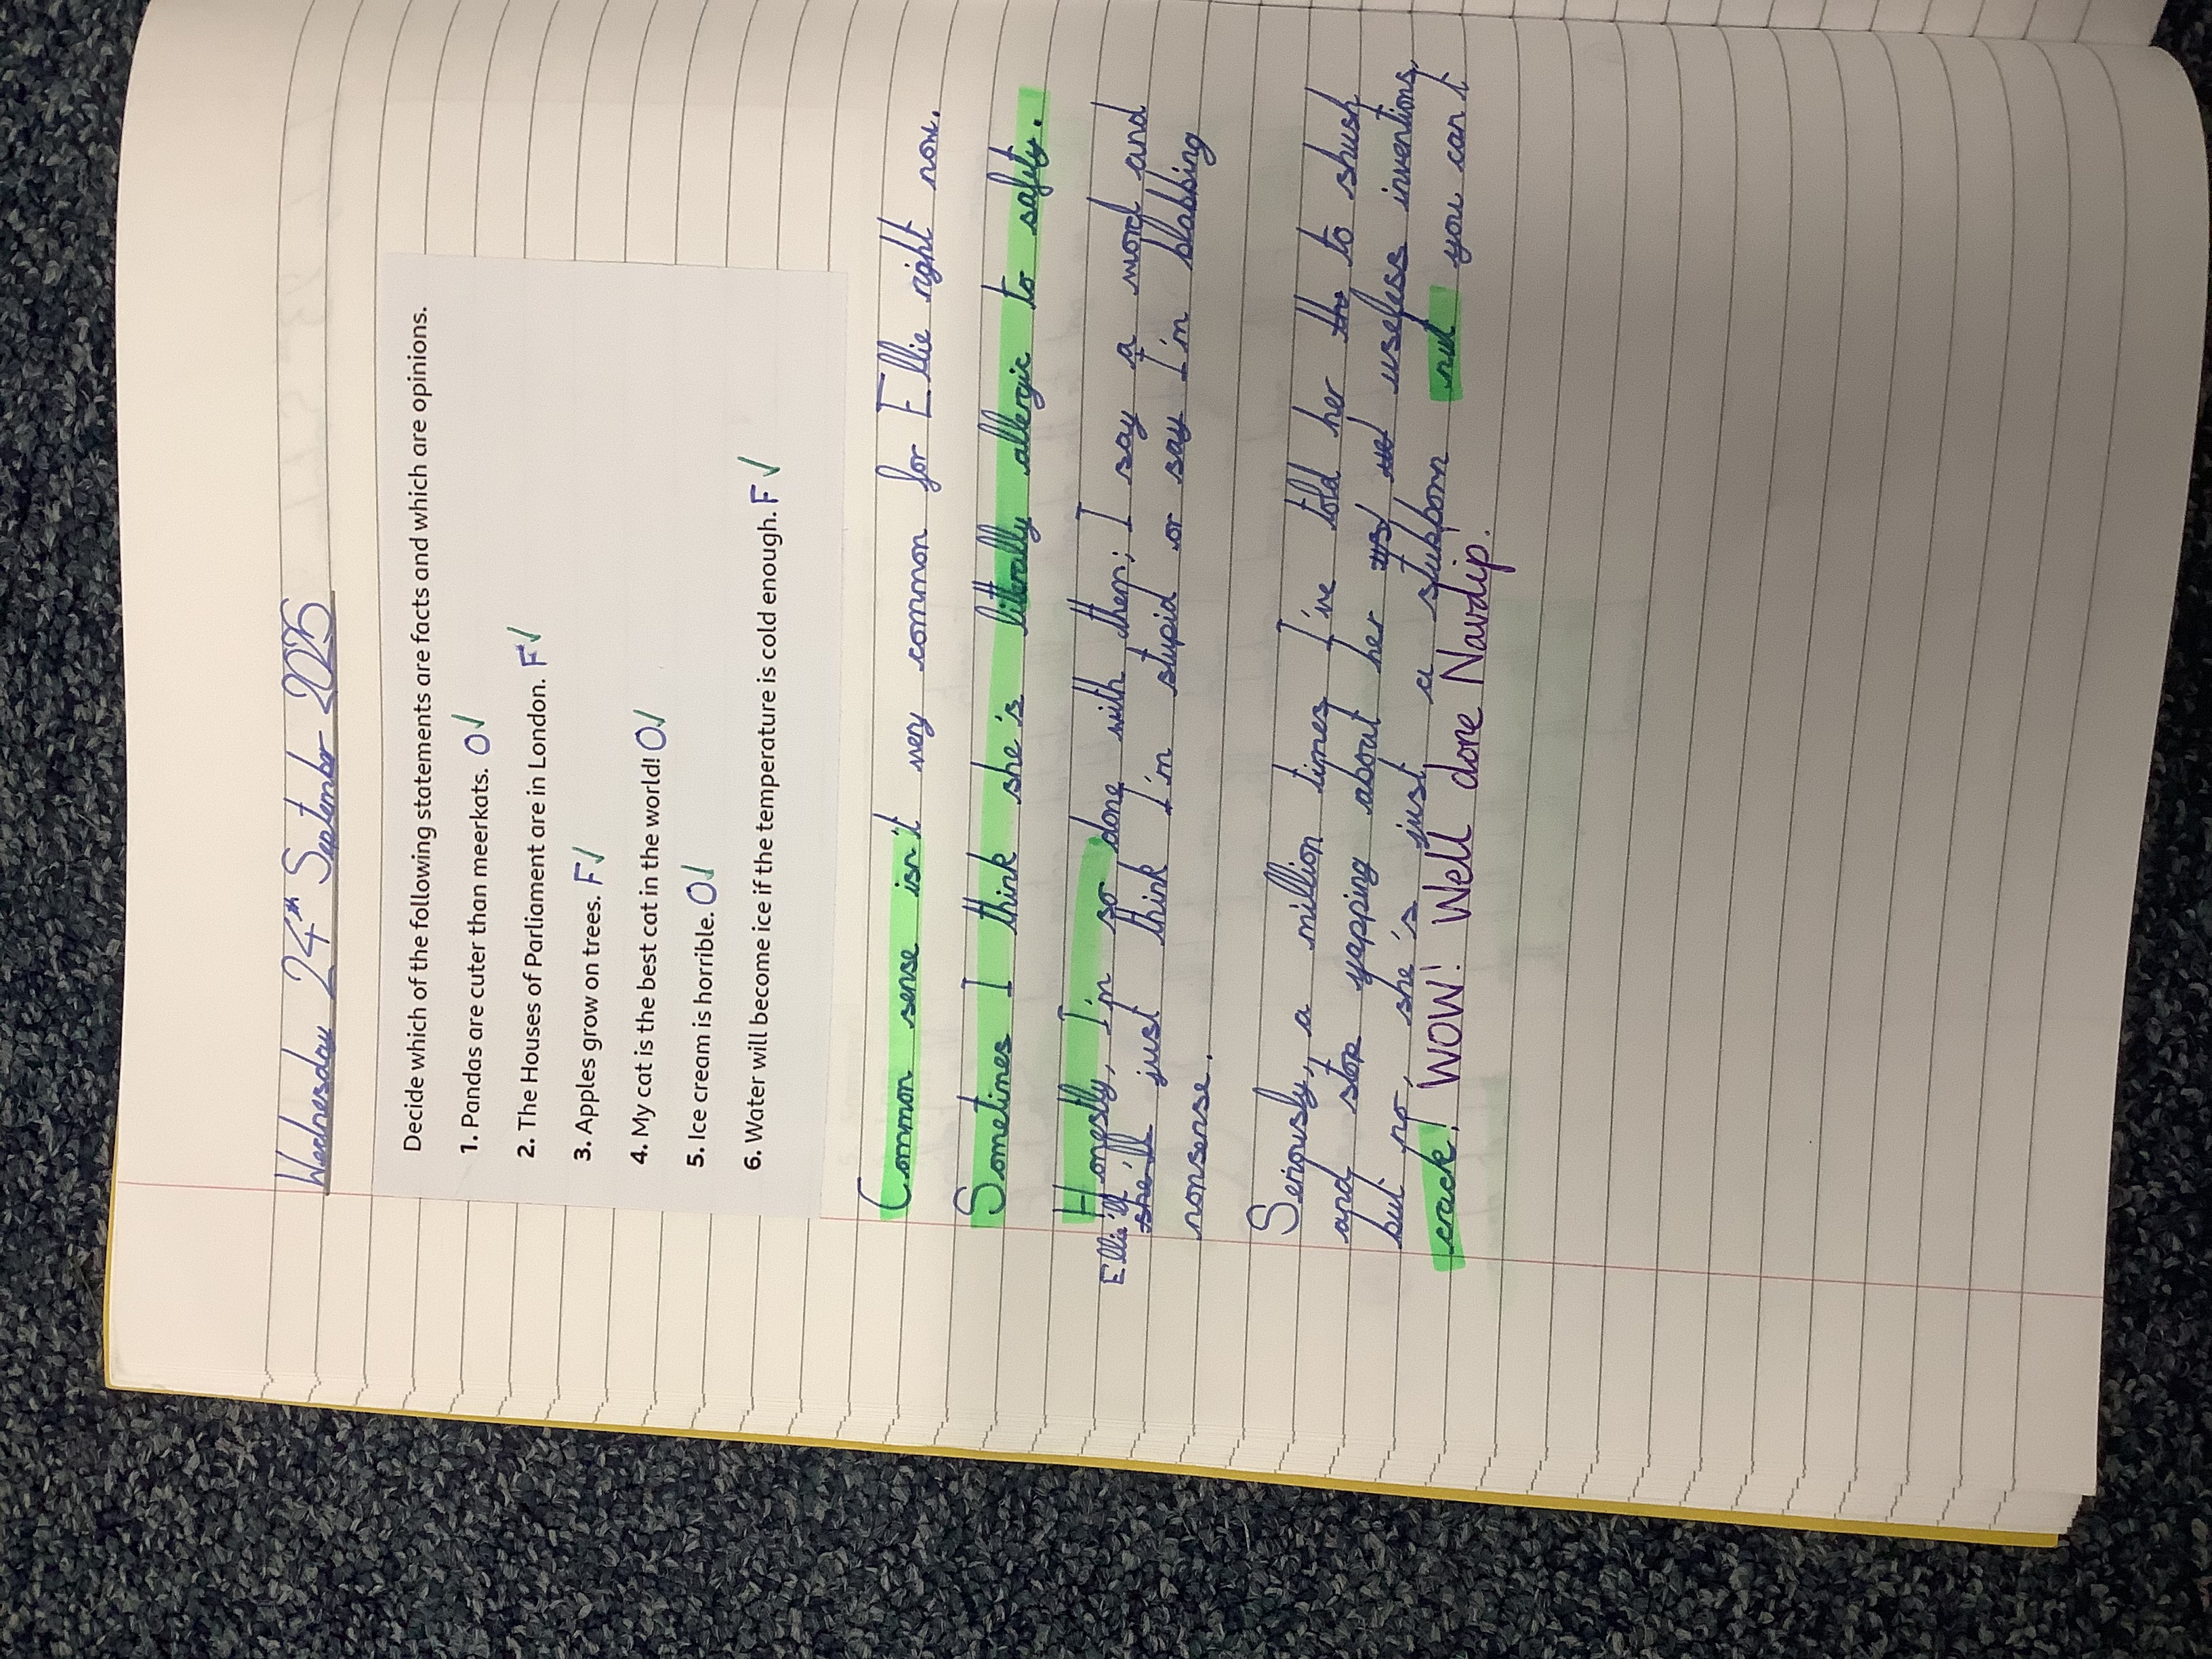 Wednesday 24th September 2025
Decide which of the following statements are facts and which are opinions.
1. Pandas are cuter than meerkats. O✓
2. The Houses of Parliament are in London. F✓
3. Apples grow on trees. F✓
4. My cat is the best cat in the world! O✓
5. Ice cream is horrible. O✓
6. Water will become ice if the temperature is cold enough. F✓
Common sense isn't very common for Ellie right now.
Sometimes I think she's litterally allergic to safity.
Honestly, I'm so done with them; I say a word and
Ellie'll
she'll just think I'm stupid or say I'm blabbing
nonsense.
Seriously, a million times I've told her to shush
and stop yapping about her useless inventions,
but no, she's just a stubborn nut you can't
crack! WOW! Well done Navdip.